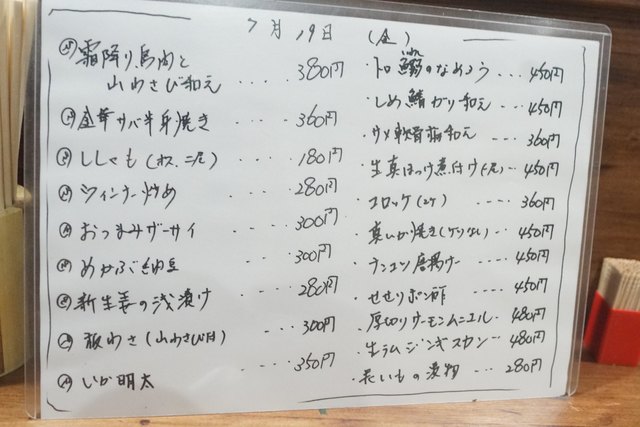 7月19日(金)
霜降り馬肉と
山わさび和え ... 380円
金華サバ半身焼き ... 360円
ししゃも(オス、二尾) ... 180円
ウィンナー炒め ... 280円
おつまみザーサイ ... 300円
めかぶ納豆 ... 300円
新生姜の浅漬け ... 280円
板わさ(山わさび付) ... 300円
いか明太 ... 350円
・トロ鰯のなめろう ... 450円
・しめ鯖ガリ和え ... 450円
・ウメ軟骨 和え ... 360円
・生真ほっけ煮付け(一尾) ... 450円
・コロッケ(2ケ) ... 360円
・真いか焼き(ゲソなし) ... 450円
・ナンコツ唐揚げ ... 450円
・せせりポン酢 ... 450円
・厚切りサーモンムニエル ... 480円
・生ラムジンギスカン ... 480円
・長いもの漬物 ... 280円